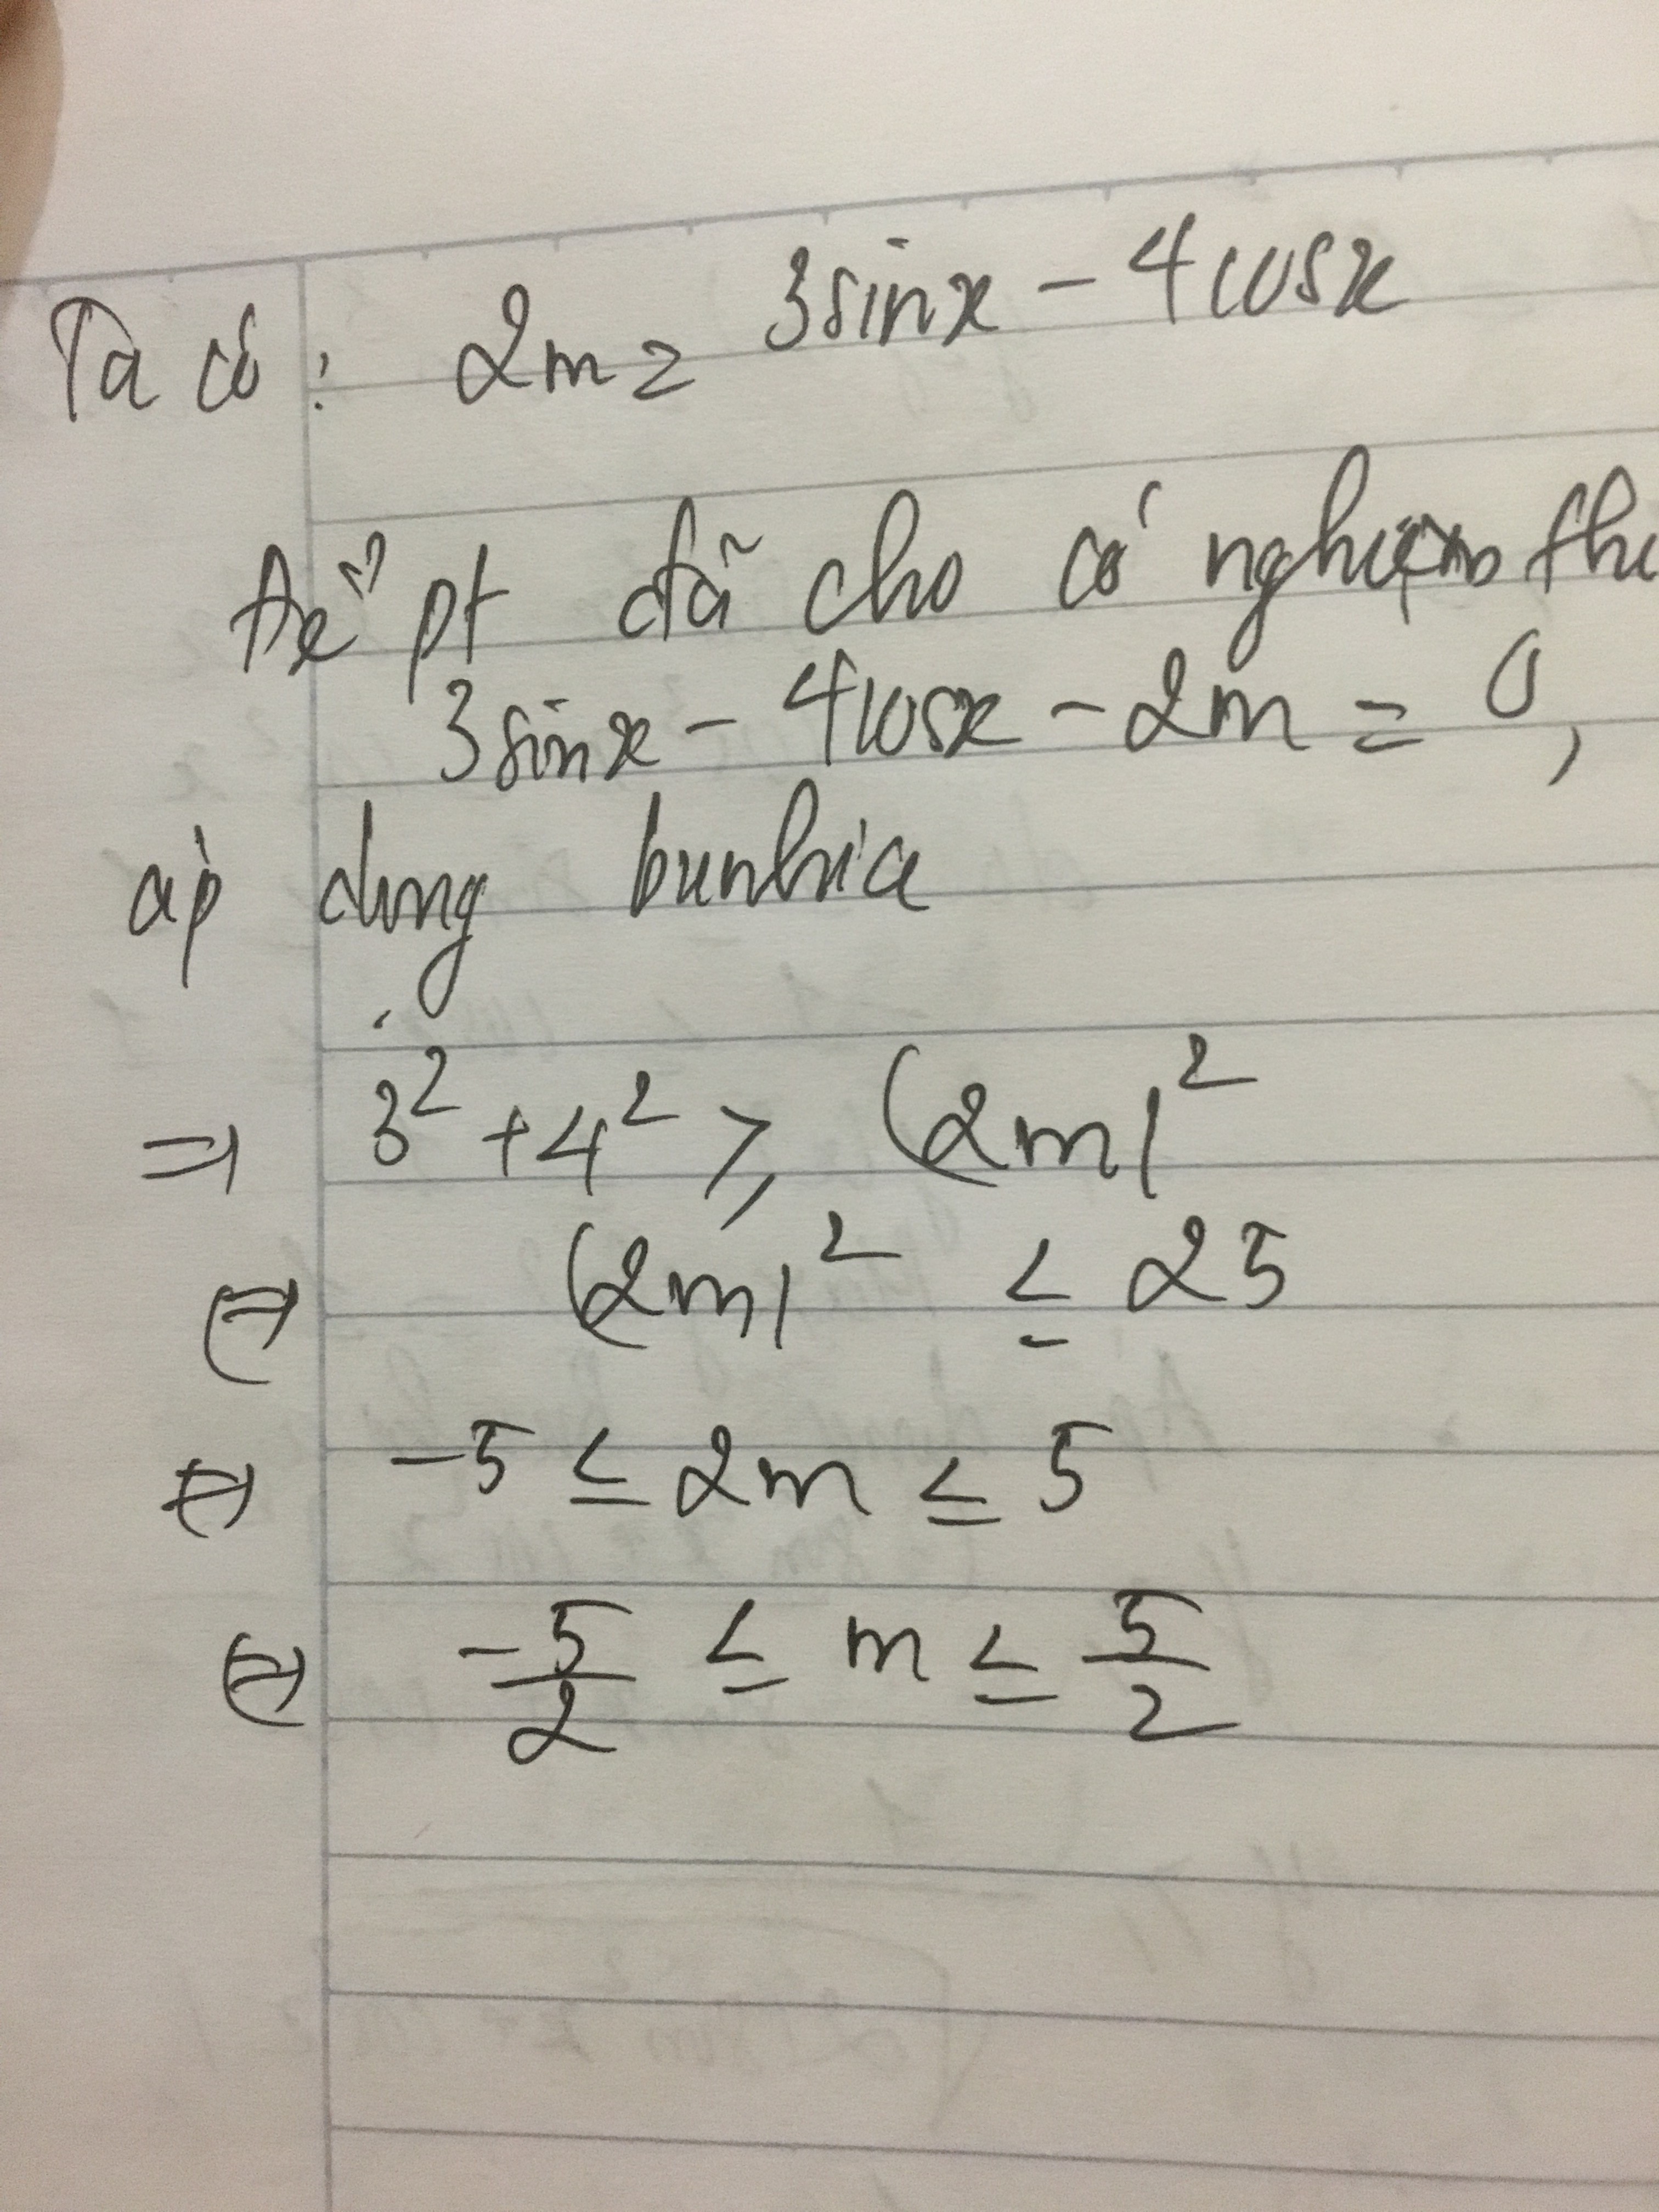 Ta có: 2m = 3sinx - 4cosx
Để pt đã cho có nghiệm thì
3sinx - 4cosx - 2m = 0,
áp dụng bunhia
=> 3² + 4² ≥ (2m)²
<=> (2m)² ≤ 25
<=> -5 ≤ 2m ≤ 5
<=> -5/2 ≤ m ≤ 5/2